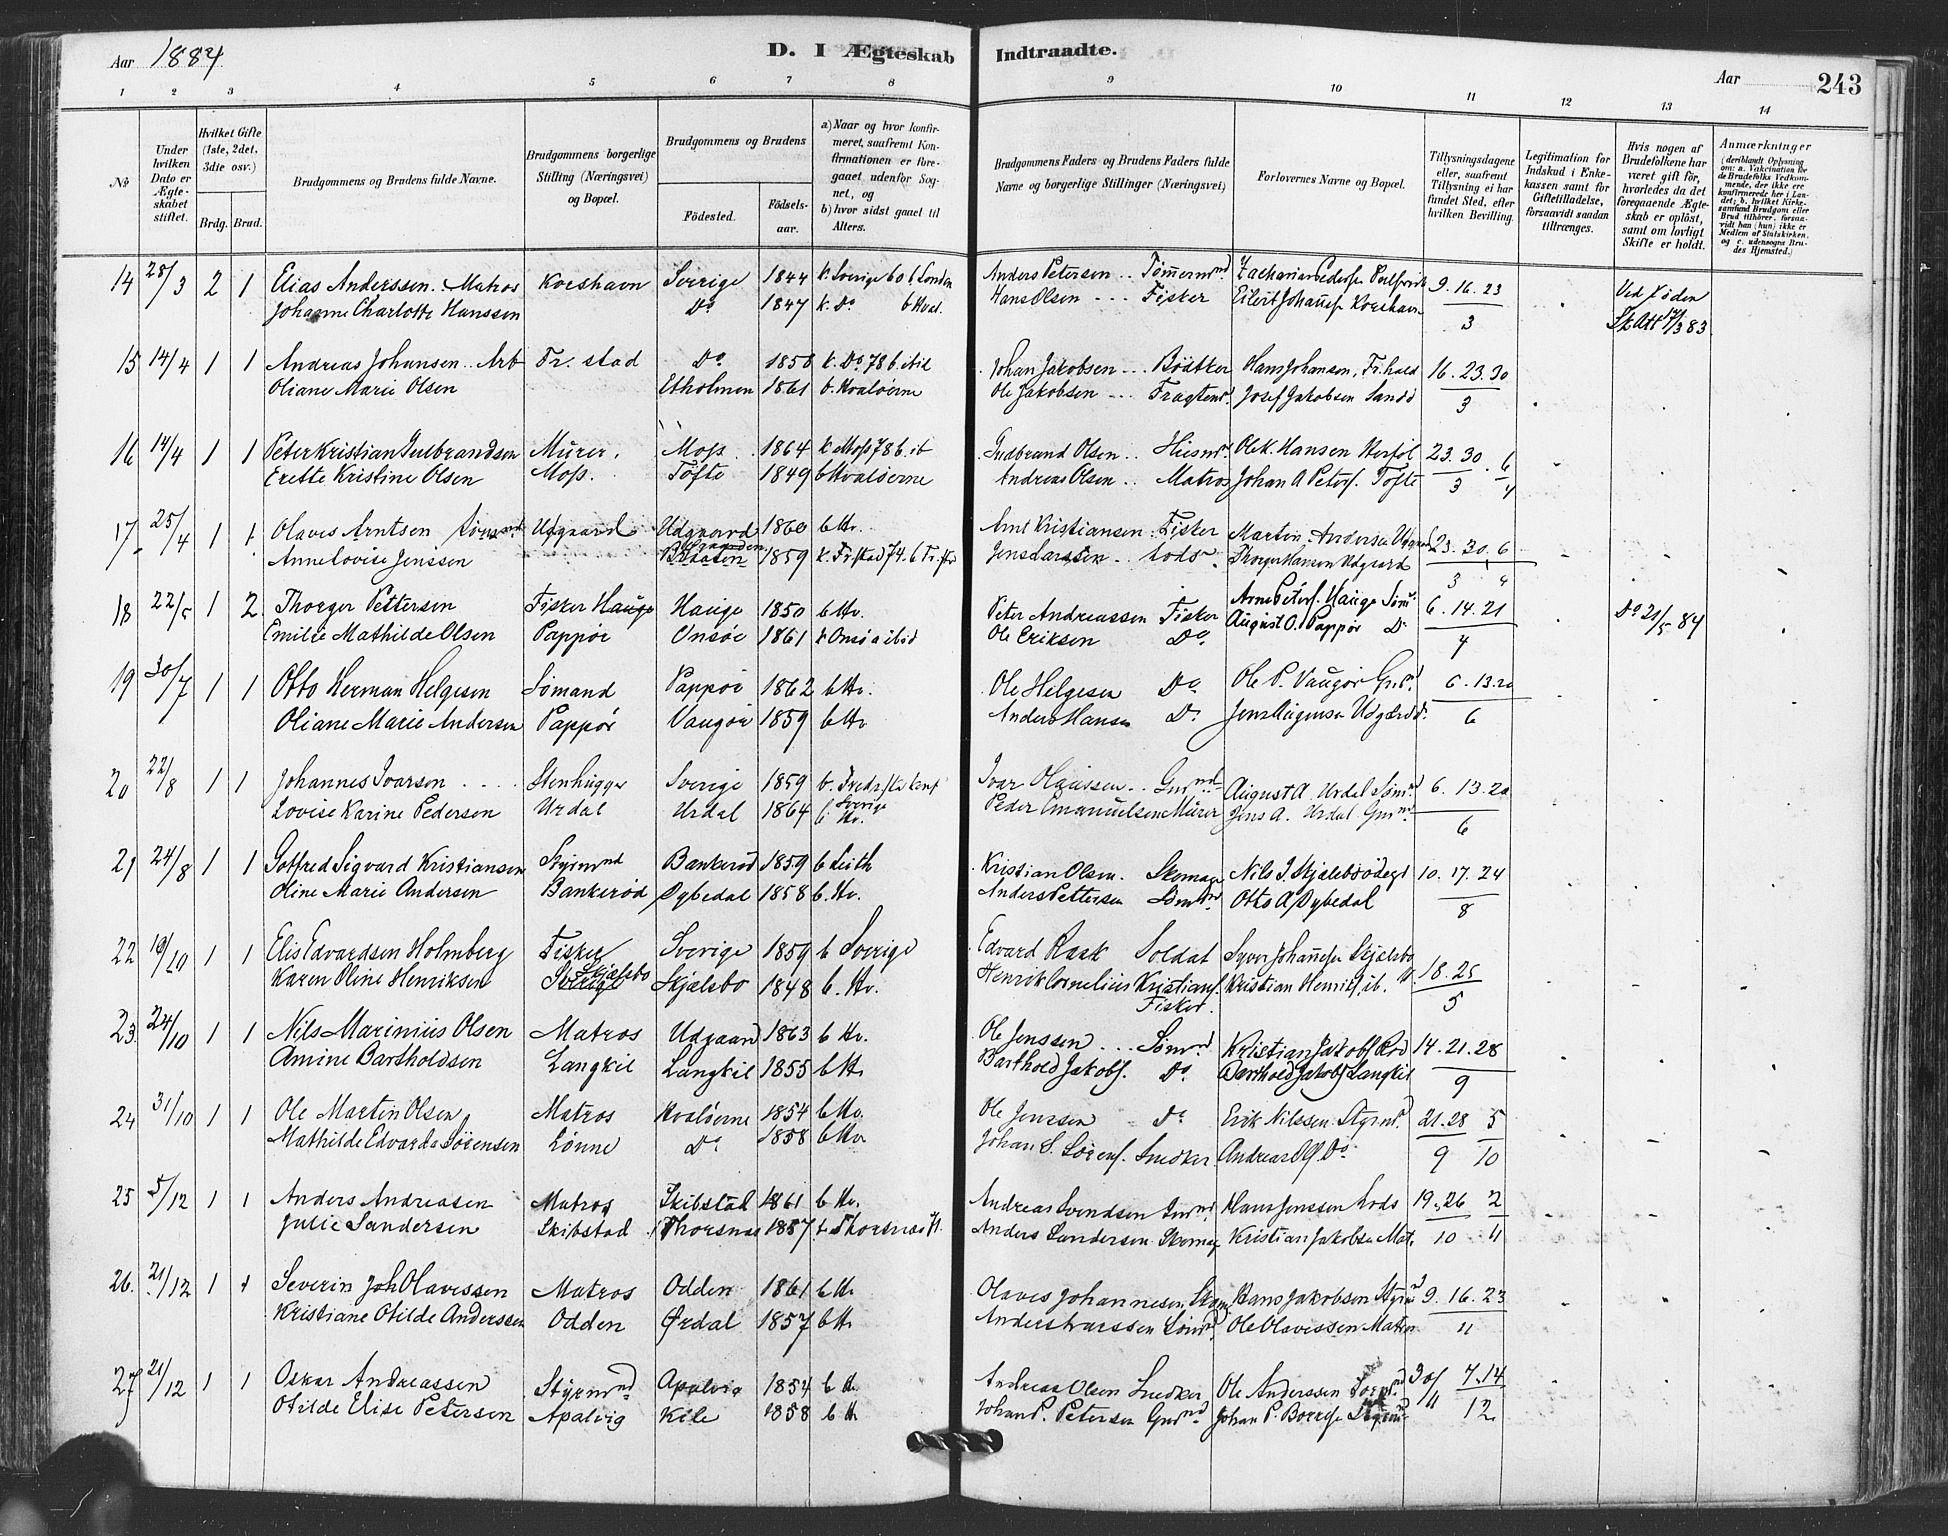 Aar 1884 D. I Ægteskab Indtraadte. Aar 243
1 2 3 4 5 6 7 8 9 10 11 12 13 14
No
Under hvilken Dato er Ægteskabet stiftet.
Hvilket Gifte (1ste, 2det, 3die osv.)
Brdg. Brud.
Brudgommens og Brudens fulde Navne.
Brudgommens borgerlige Stilling (Næringsvei) og Bopæl.
Brudgommens og Brudens
Fødested. Fødselsaar.
a) Naar og hvor konfirmeret, saafremt Konfirmationen er foregaaet udenfor Sognet, og
b) hvor sidst gaaet til Alters.
Brudgommens Faders og Brudens Faders fulde Navne og borgerlige Stillinger (Næringsvei)
Forlovernes Navne og Bopæl.
Tillysningsdagene eller, saafremt Tillysning ei har fundet Sted, efter hvilken Bevilling.
Legitimation for Indskud i Enkekassen samt for Giftetilladelse, forsaavidt saadan tiltrænges.
Hvis nogen af Brudefolkene har været gift før, hvorledes da det foregaaende Ægteskab er opløst, samt om lovligt Skifte er holdt.
Anmærkninger
(deriblandt Oplysning om: a. Vakcination for de Brudefolks Vedkommende, der ikke ere konfirmerede her i Landet; b. hvilket Kirkesamfund Brudgom eller Brud tilhører, forsaavidt han (hun) ikke er Medlem af Statskirken, og c. udensogns Brudes Hjemsted.)
14 28/3 2 1 Elias Anderssen. Matros Korshavn Sverige 1844 k. Sverige 60 b. London Anders Petersen .. Tømermnd. 9. 16. 23 Ved Døden
Johanne Charlotte Hanssen Do 1847 k. Do b Hval. Hans Olsen --- Fisker Eilert Johanss Korshavn 3 Sk. Att 17/3 83
15 14/4 1 1 Andreas Johansen.. Arb Fr. stad Do 1858 k. Do 78 b. ibid Johan Jakobsen --- Bødtker Hans Johanson, Fr.hald 16. 23. 30
Oliane Marie Olsen Etholmen 1861 b. Hvaløerne Ole Jakobsen --- Josef Jakobsen Sand 3
16 14/4 1 1 Peter Kristian Gulbrandsen Murer, Moss 1864 k Moss 78 b. ib Gudbrand Olsen .. Husmd. Ole K. Hansen Herføl 23. 30. 6
Erette Kristine Olsen Moss. Tofte 1849 b Hvaløerne Andreas Olsen .. Matros Johan A Peters. Tofte 3 4
17 25/4 1 1. Olaves Arntsen Udgaard Udgaard 1860 b Hv. Arnt Kristiansen. Fisker Martin Andersen 23. 30. 6
Anne Lovise Jenssen 1859 k. Fr.stad 74. b Fr.stad Jens Larssen. Lods Thorger Hansen Udgaard 3 4
18 22/5 1 2. Thorger Pettersen Fisker Hauge Hauge 1850 b Hv. Peter Andreassen Fisker Arne Peters. Hauge Søm. 6. 14. 21 Do 21/5 84
Emilie Mathilde Olsen Pappør Onsøe 1861 k Onsø a ibid Ole Eriksen Do. August O. Pappør Do 4
19 30/7 1 1 Otto Herman Helgesen Sømand Pappøe 1862 b Hv. Ole Helgesen Do Ole P. Vaugør 6. 13. 20
Oliane Marie Andersen Pappør Vaugør 1859 b Hv Anders Hansen Do 6
20 22/8 1 1 Johannes Ivarsen .... Stenhugger Sverige 1859 b. Fredr.sta konf Sverige Ivar Olaussen .. Gmd August A. Urdal Sømd. 6. 13. 20
Lovise Karine Pedersen Urdal Urdal 1864 b Hv. Peder Emanuelsen Murer Jens A. Urdal Gmd. 6
21 24/8 1 1 Gotfred Sigvard Kristiansen Styrmnd Bankerød 1859 b Leith Kristian Olsen. Skomag Nils J. Skjelsbo 10. 17. 24
Oline Marie Andersen Bankerød Dybedal 1858 b. Hv. Anders Pettersen Sømnd Otto A. Dybedal 8
22 19/10 1 1 Elis Edvardsen Holmberg Fisker Sverige 1859 b Sverige Edvard Rask Soldat Syver Johannss Skjelsbo 18. 25
Karen Oline Henriksen Skjelsbo Skjelsbo 1848 b. Hv. Henrik Cornelius Kristians. Fisker Kristian Henriks. ib. 5
23. 24/10 1 1 Nils Marinius Olsen Matros Udgaard 1863 b Hv. Ole Jenssen ... Sømnd Kristian Jakobs Rød 14. 21. 28
Amine Bartholdsen Langkil Langkil 1855 b Hv Barthold Jakobs. Do. Barthold Jakobs Langkil 9
24 31/10 1 1 Ole Martin Olsen Matros Hvaløerne 1854 b Hv. Ole Jenssen Do Erik Nilssen Styrmd. 21. 28 5
Mathilde Edvarda Sørensen Lønne Do 1858 b Hv Johan S. Sørens. Snedker Andreas Do 9 10
25 5/12 1 1 Anders Andreasen Matros Skibstad 1861 b Hv. Andreas Svendsen Hans Jenssen Lods 19. 26 2
Julie Sandersen Skibstad Thorsnæs 1857 b Thorsnæs Anders Sandersen Skomag Kristian Jakobsen Mat. 10 11
26. 21/12 1 1 Severin Joh Olavessen Matros Odden 1861 b Hv Olaves Johannesen, Hans Jakobsen Styrmd 9. 16. 23
Kristiane Otilde Anderssen Odden Ørdal 1857 b Hv Ole Olavessen Matros 11
27 21/12 1 1 Oskar Andreassen Styrmnd Apalvig 1854 b Hv Andreas Olsen Snedker Ole Anderssen 30/11 7. 14
Otilde Elise Petersen Apalvig Kile 1858 b Hv Johan P. Petersen Gmnd Johan P. 12